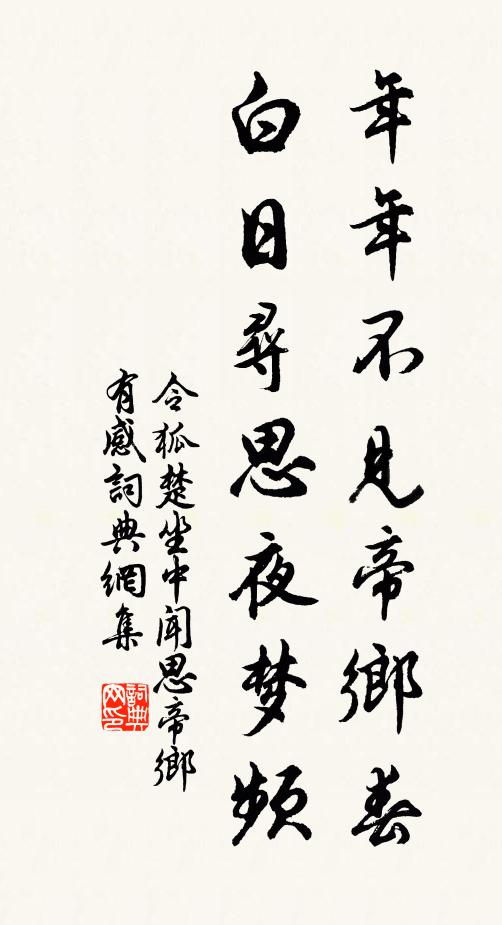 年年不見帝鄉春
白日尋思夜梦頻
令狐楚坐中聞思帝鄉
有感詞典網集
詞典网印